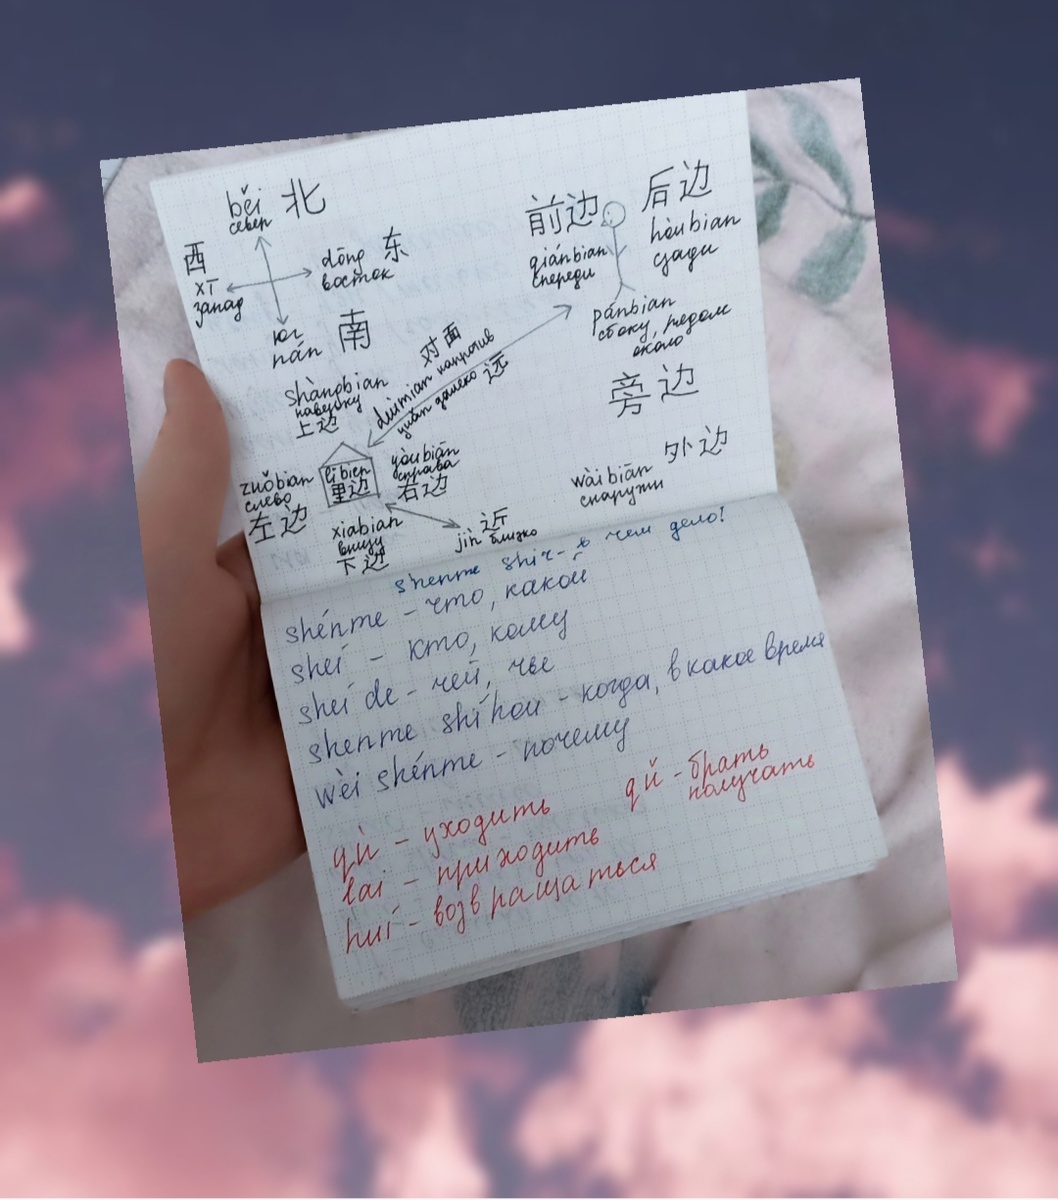 běi 北
север
西
xī
запад
dōng 东
восток
юг
nán 南
前边
qiánbian
спереди
后边
hòubian
сзади
pángbian
сбоку, рядом
около
旁边
对面
duìmiàn напротив
yuǎn далеко 远
shàngbian
наверху
上边
zuǒbian
слево
左边
lǐbian
里边
yòubiān
справа
右边
xiabian
внизу
下边
近
jìn близко
外边
wàibiān
снаружи
shenme shìr - в чем дело!
shénme - что, какой
sheí - кто, кому
sheí de - чей, чье
shenme shíhou - когда, в какое время
wèi shénme - почему
qù - уходить
qǔ - брать
получать
lai - приходить
huí - возвращаться